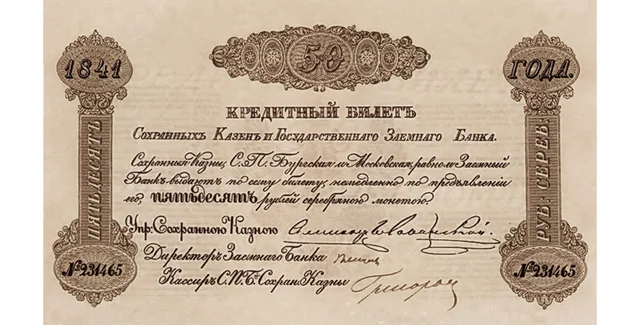 1841
50
ГОДА.
КРЕДИТНЫЙ БИЛЕТЪ
СОХРАННЫХЪ КАЗЕНЪ И ГОСУДАРСТВЕННАГО ЗАЕМНАГО БАНКА.
Сохранныя Казны, С.П.Бургская и Московская, равномѣрно Заемный
Банкъ выдаютъ по сему билету, немедленно по предъявленіи
его, пятьдесятъ рублей серебряною монетою.
Упр: Сохранною Казною
Директоръ Заемнаго Банка
Кассиръ С.П.Б. Сохран. Казны
ПЯТЬДЕСЯТЪ
РУБ: СЕРЕБ:
№231465
№231465